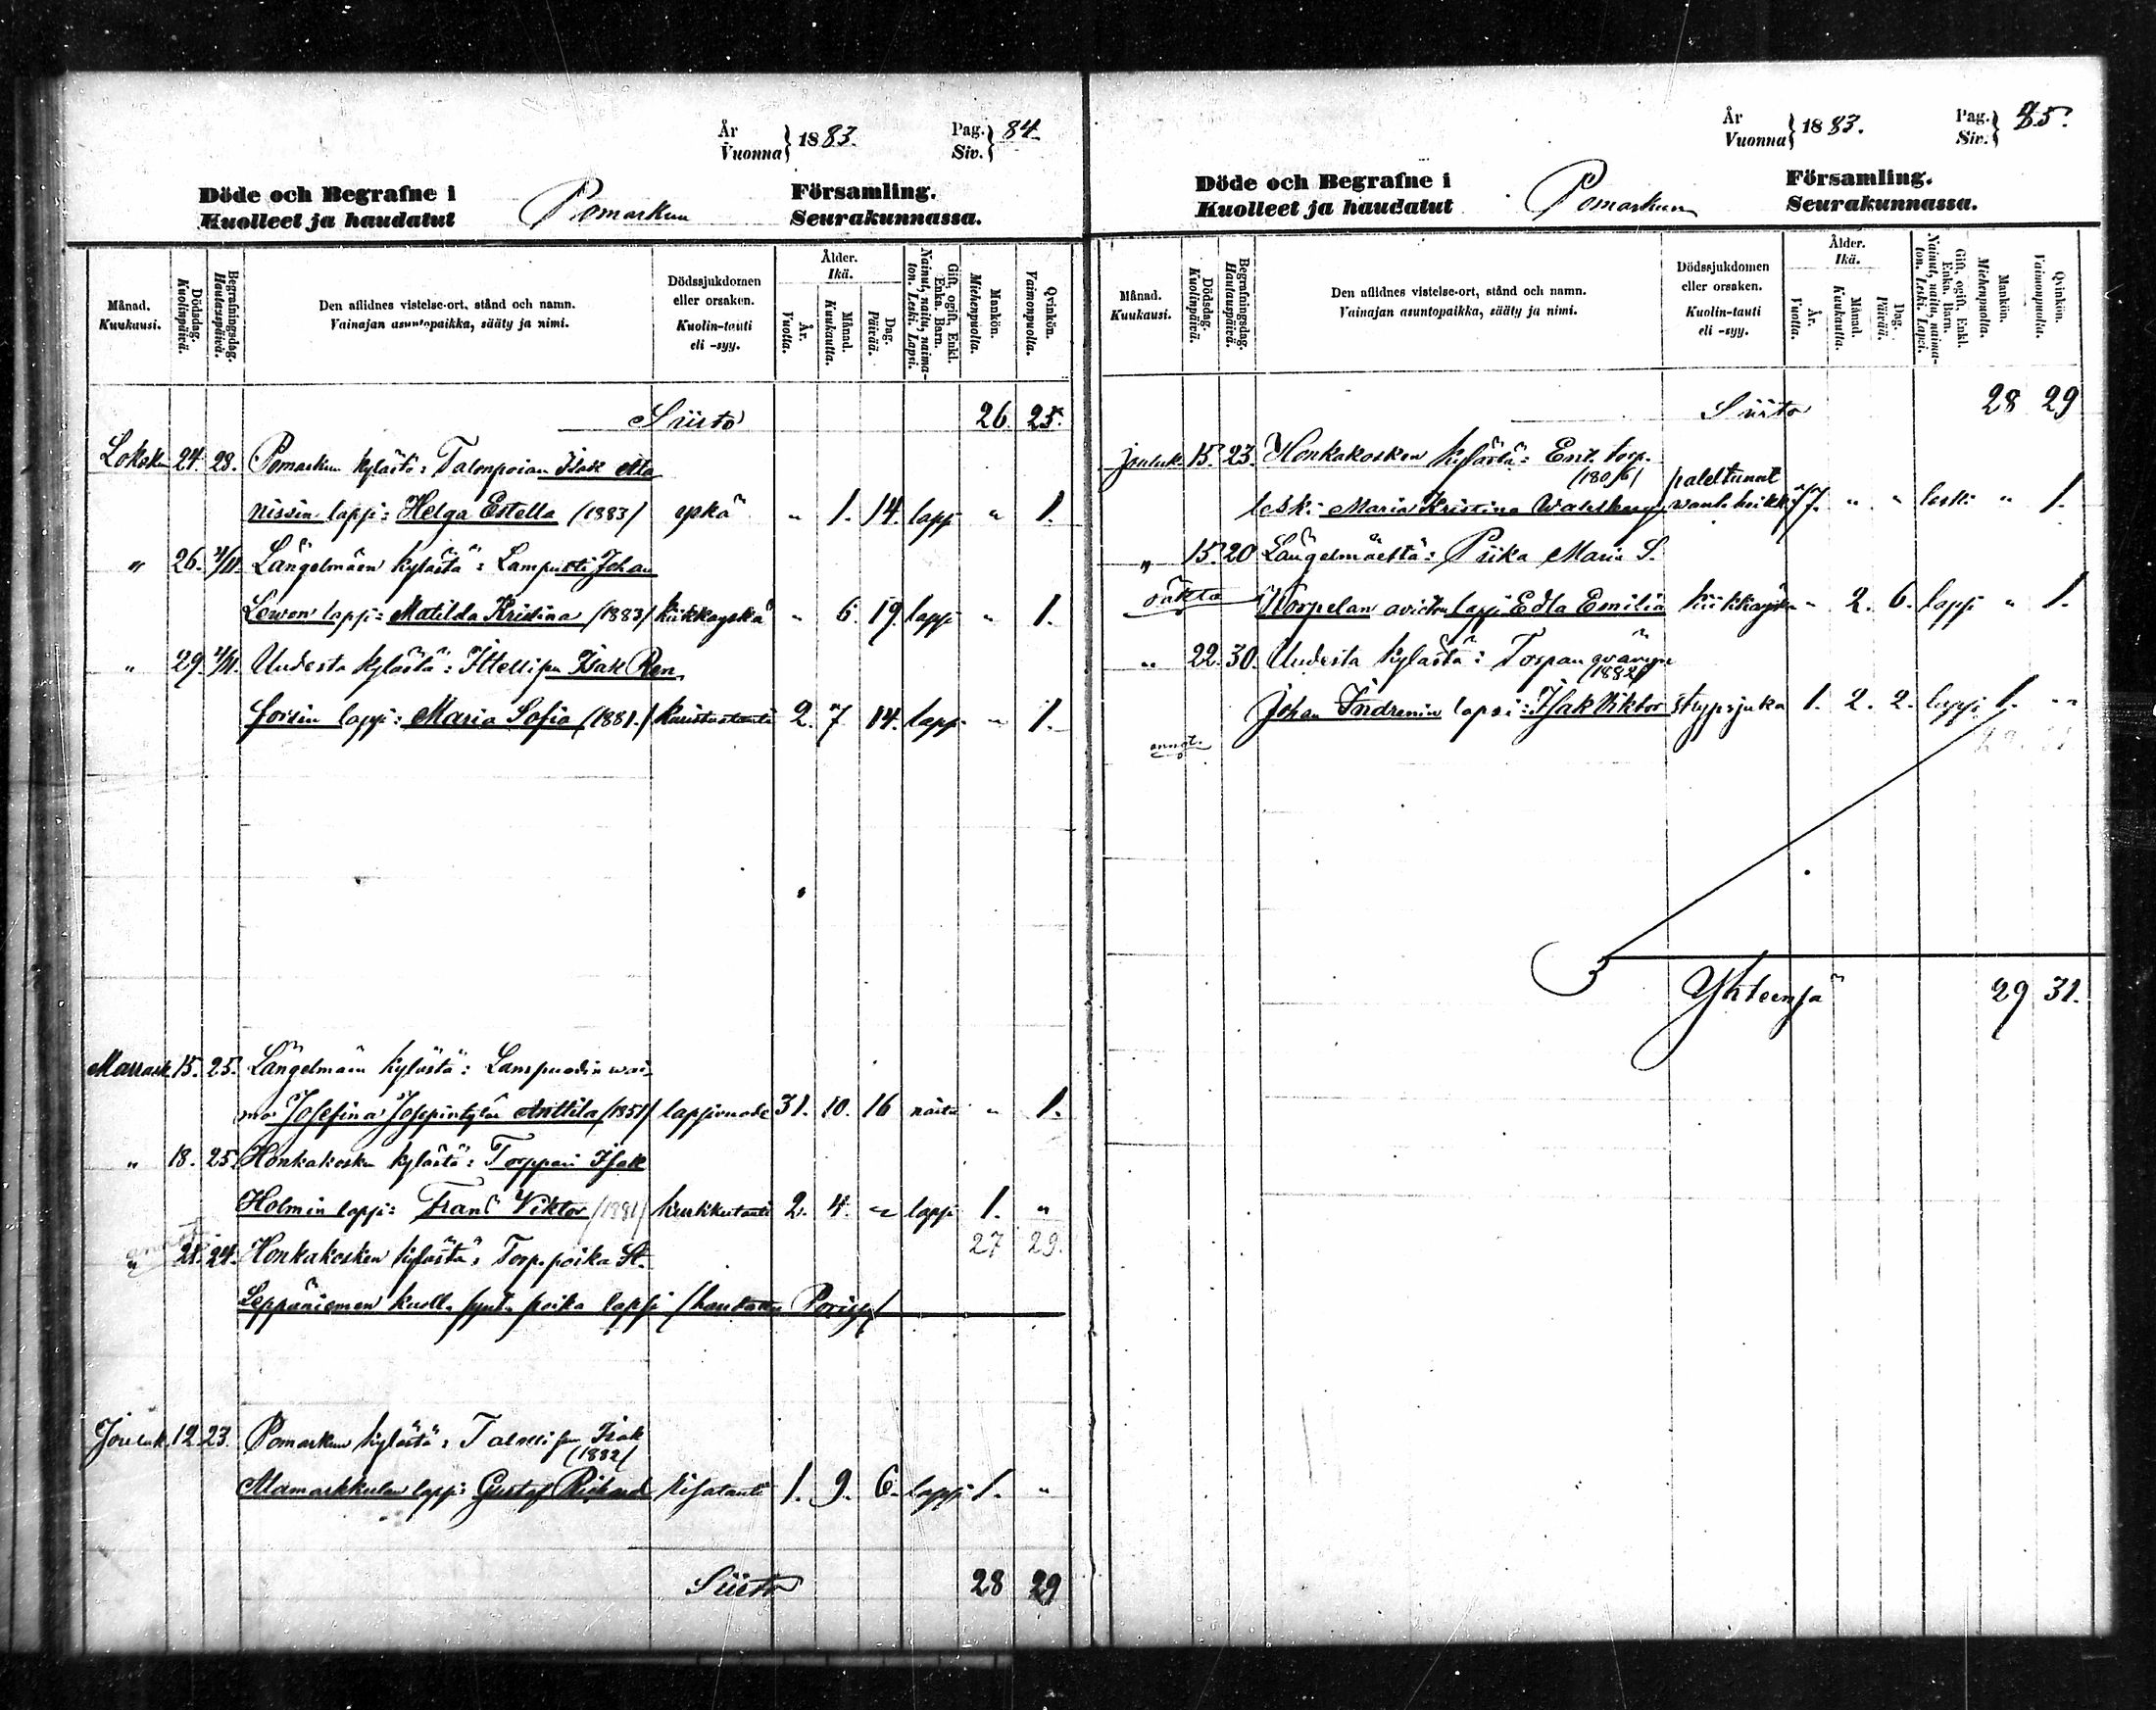 År
Vuonna } 1883.
Pag.
Siv. } 84
Döde och Begrafne i
Kuolleet ja haudatut
Pomarkun
Församling.
Seurakunnassa.
Månad.
Kuukausi.
Dödsdag.
Kuolinpäivä.
Begrafningsdag.
Hautauspäivä.
Den aflidnes vistelse-ort, stånd och namn.
Vainajan asuntopaikka, sääty ja nimi.
Dödssjukdomen
eller orsaken.
Kuolin-tauti
eli -syy.
Ålder.
Ikä.
År.
Vuotta.
Månad.
Kuukautta.
Dag.
Päivää.
Gift, ogift, Enkl.
Enka. Barn.
Nainut, naitu, naima-
ton. Leski. Lapsi.
Mankön.
Miehenpuolta.
Qvinkön.
Vaimonpuolta.
Siirto 26. 25.
Lokak. 24. 28. Pomarkun kylästä: Talonpoian Isak
nissin lapsi: Helga Estella (1883) yskä " 1. 14. lapsi " 1.
" 26. 4/11. Längelmäen kylästä: Lampuoti Johan
lapsi: Matilda Kristina (1883) hinkkayskä " 6. 19. lapsi " 1.
" 29. 4/11. Uudesta kylästä: Isak Ren
forsin lapsi: Maria Sofia (1881.) kuristustauti 2. 7 14. lapsi " 1.
Marrask. 15. 25. Längelmäen kylästä: Lampuodin wai-
mo Josefina Anttila (1851) lapsivuode 31. 10. 16 naitu " 1.
" 18. 25. Honkakosken kylästä: Torppari Isak
Holmin lapsi: Frans Viktor (1881) kurkkutauti 2. 4. " lapsi 1. "
27 29.
" 21. 24. Honkakosken kylästä: Torp. poika
Leppäniemen kuoll. synt. poika lapsi (haudattu Porissa)
Jouluk. 12. 23. Pomarkun kylästä: Isak
(1882)
Mamarkkulan lapsi: Gustaf Rickard 1. 9. 6. lapsi 1. "
Siirto 28 29
År
Vuonna } 1883.
Pag.
Siv. } 85.
Döde och Begrafne i
Kuolleet ja haudatut
Pomarkun
Församling.
Seurakunnassa.
Månad.
Kuukausi.
Dödsdag.
Kuolinpäivä.
Begrafningsdag.
Hautauspäivä.
Den aflidnes vistelse-ort, stånd och namn.
Vainajan asuntopaikka, sääty ja nimi.
Dödssjukdomen
eller orsaken.
Kuolin-tauti
eli -syy.
Ålder.
Ikä.
År.
Vuotta.
Månad.
Kuukautta.
Dag.
Päivää.
Gift, ogift, Enkl.
Enka. Barn.
Nainut, naitu, naima-
ton. Leski. Lapsi.
Mankön.
Miehenpuolta.
Qvinkön.
Vaimonpuolta.
Siirto 28 29
jouluk. 15. 23. Honkakosken kylästä: Ent. torp.
(1806) paleltunut
lesk. Maria Kristina Wahlberg 77. " " leski " 1.
" 15. 20 Längelmäeltä: Piika Maria S.
Worpelan lapsi Edla Emilia " 2. 6. lapsi " 1.
" 22. 30. Uudesta kylästä: Torpan
(1882)
Johan Indrenin lapsi: Isak Viktor strypsjuka 1. 2. 2. lapsi 1. "
29. 31
Yhteensä 29 31.